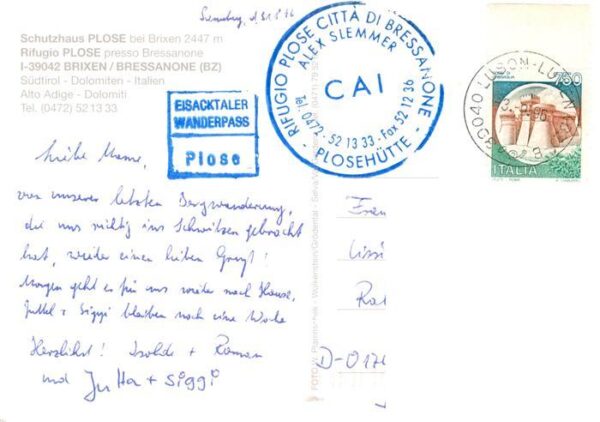 Schutzhaus PLOSE bei Brixen 2447 m
Rifugio PLOSE presso Bressanone
I-39042 BRIXEN / BRESSANONE (BZ)
Südtirol - Dolomiten - Italien
Alto Adige - Dolomiti
Tel. (0472) 52 13 33
EISACKTALER
WANDERPASS
Plose
RIFUGIO PLOSE CITTÀ DI BRESSANONE
ALEX SLEMMER
CAI
Tel. 0472 - 52 13 33 - Fax 52 12 36
- PLOSEHÜTTE -
750
ITALIA
LUSON-LUSEN
Liebe Mama,
von unserer letzten Bergwanderung,
die uns richtig ins Schwitzen gebracht
hat, wieder einen lieben Gruß!
Morgen geht es für uns wieder nach Hause,
+ Siggi bleiben noch eine Woche
Herzlichst! Isolde + Roman
und Jutta + Siggi
FOTO W. Planinschek - Wolkenstein/Grödental - Selva
Frau
Lissi
D-017